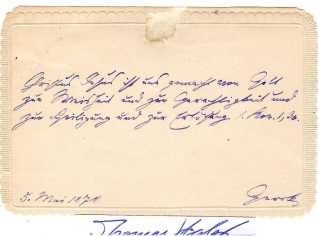 Christus Jesus ist uns gemacht von Gott
zur Weisheit und zur Gerechtigkeit und
zur Heiligung und zur Erlösung 1. Kor. 1, 30.
5. Mai 187
Gerok
Thomas